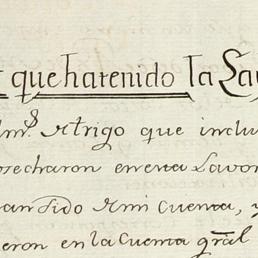 que ha tenido la La
que inclu
echaron en esa Lavor
an sido Rmi Cuenta, y
eron en la Cuenta gral